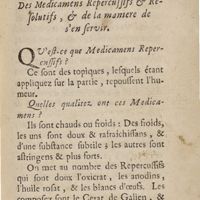 Des Medicamens Repercussifs & Re-
solutifs, & de la maniere de
s'en servir.
Qu'est-ce que Medicamens Reper-
cussifs ?
Ce sont des topiques, lesquels étant
appliquez sur la partie, repoussent l'hu-
meur.
Quelles qualitez ont ces Medica-
mens ?
Ils sont chauds ou froids : Des froids,
les uns sont doux & rafraichissans, &
d'une substance subtile ; les autres sont
astringens & plus forts.
On met au nombre des Repercussifs
qui sont doux l'oxicrat, les anodins,
l'huile rosat, & les blancs d'œufs. Les
composez sont le Cerat de Galien, &